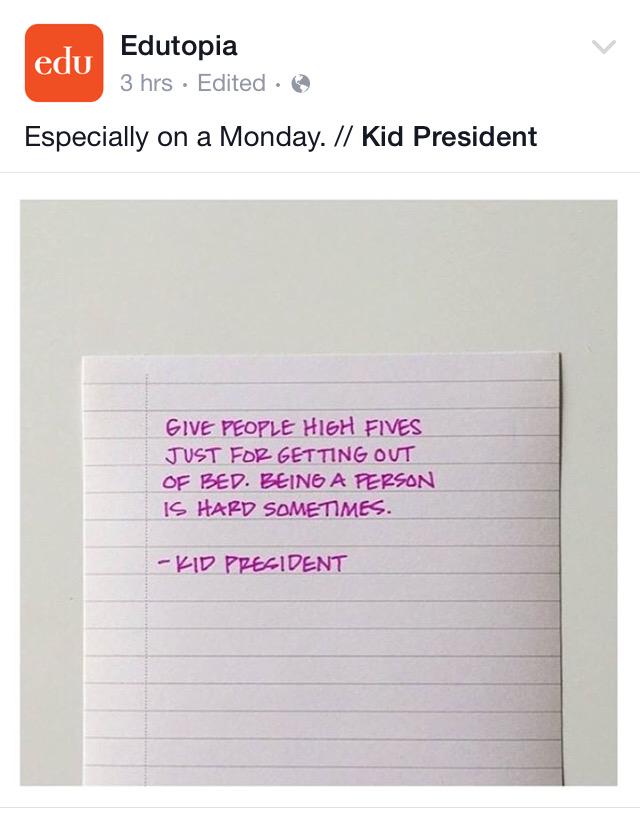 edu
Edutopia
3 hrs · Edited ·
Especially on a Monday. // Kid President
GIVE PEOPLE HIGH FIVES
JUST FOR GETTING OUT
OF BED. BEING A PERSON
IS HARD SOMETIMES.
- KID PRESIDENT